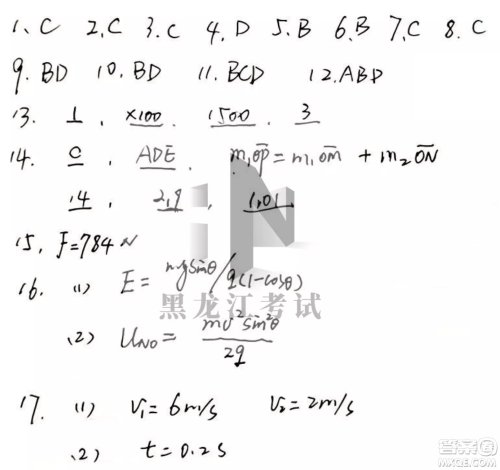 1、C 2、C 3、C 4、D 5、B 6、B 7、C 8、C
9、BD 10、BD 11、BCD 12、ABD
13、 1 、 ×100 、 1500 、 3
14、 C 、 ADE 、 m₁O̅P̅=m₁O̅M̅ + m₂O̅N̅
14 、 2.9 、 1.01
15、F=784N
16、(1) E= mgsinθ/q(1-cosθ)
(2) U_NO= mv²sin²θ/2q
黑龙江考试
17、(1) V₁=6m/s V₂=2m/s
(2) t=0.2s
答案圈
MXQE.COM